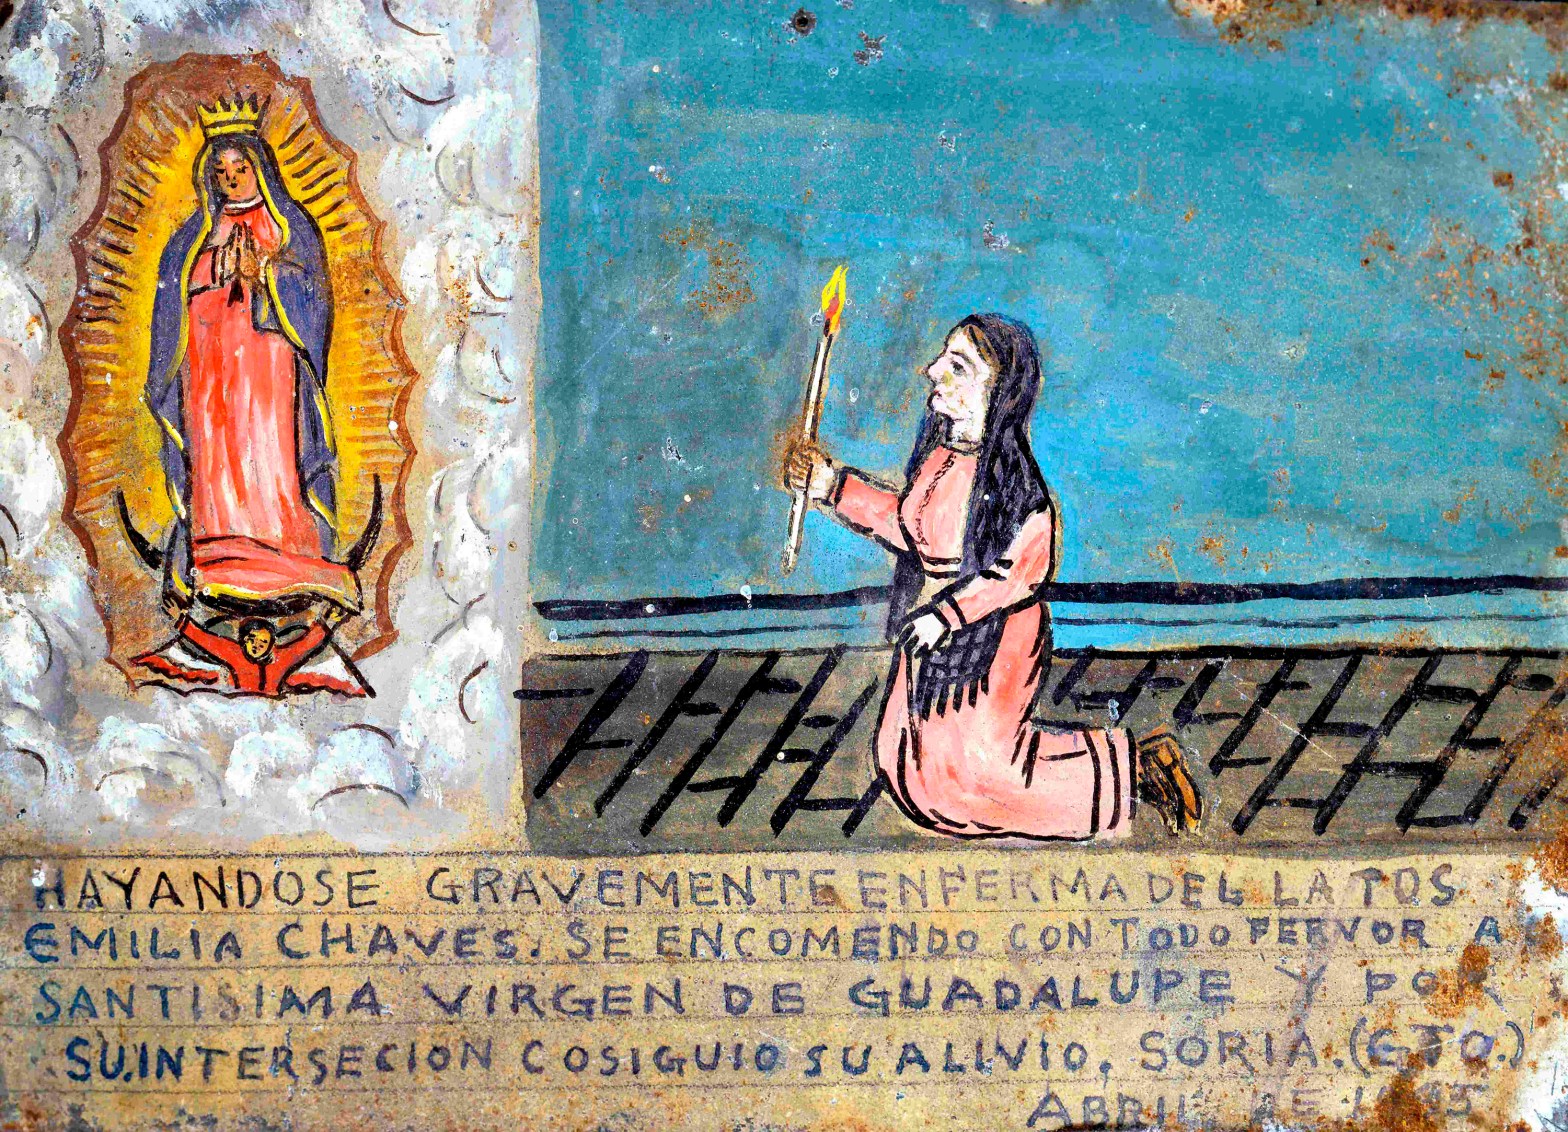 HAYANDOSE GRAVEMENTE ENFERMA DEL LA TOS
EMILIA CHAVES. SE ENCOMENDO CON TODO FERVOR A
SANTISIMA VIRGEN DE GUADALUPE Y POR
SU.INTERSECION COSIGUIO SU ALIVIO. SORIA. (GTO.)
ABRIL DE